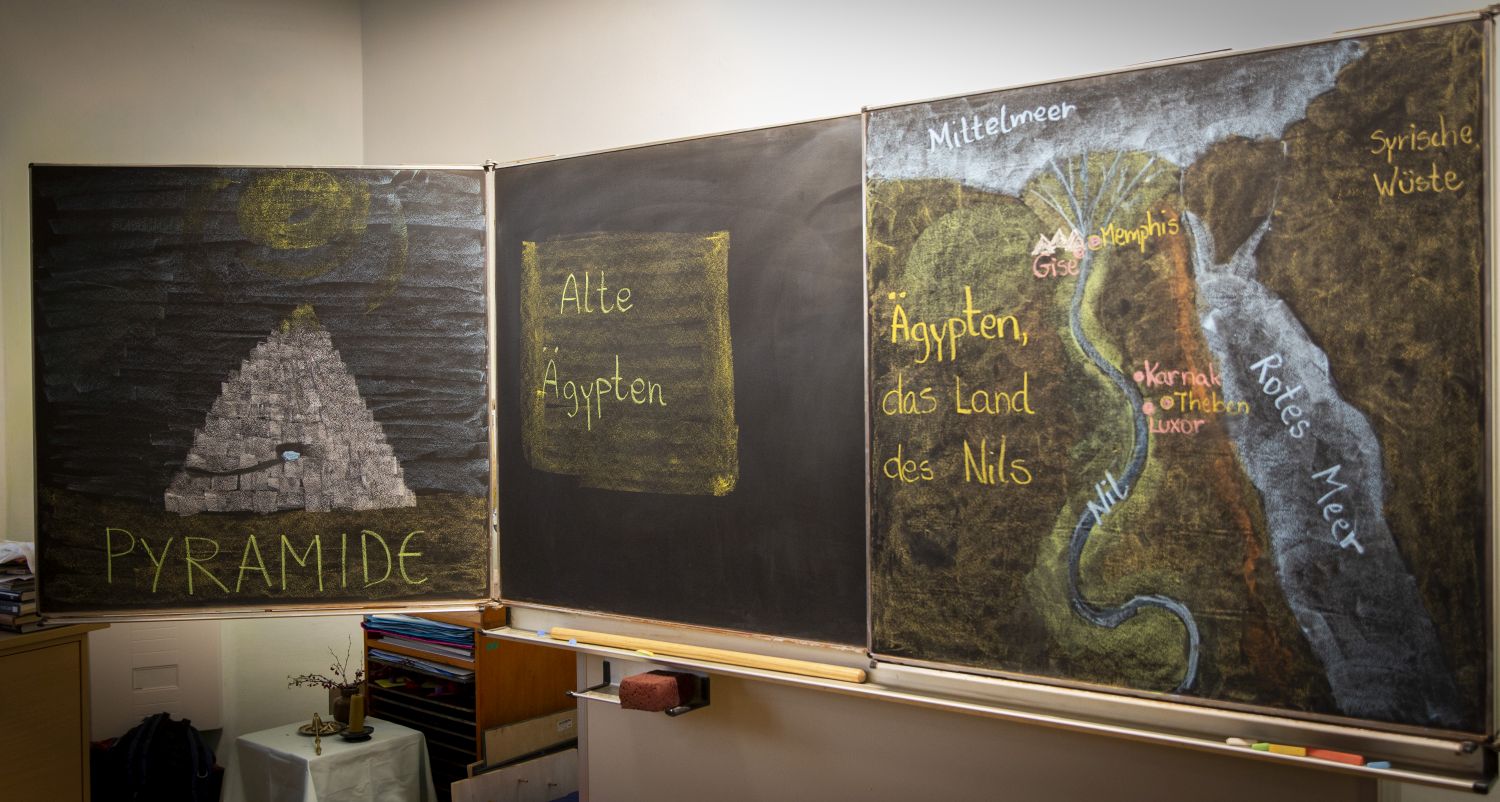 PYRAMIDE
Alte
Ägypten
Mittelmeer
Syrische
Wüste
Memphis
Gise
Ägypten,
das Land
des Nils
Karnak
Theben
Luxor
Rotes Meer
Nil